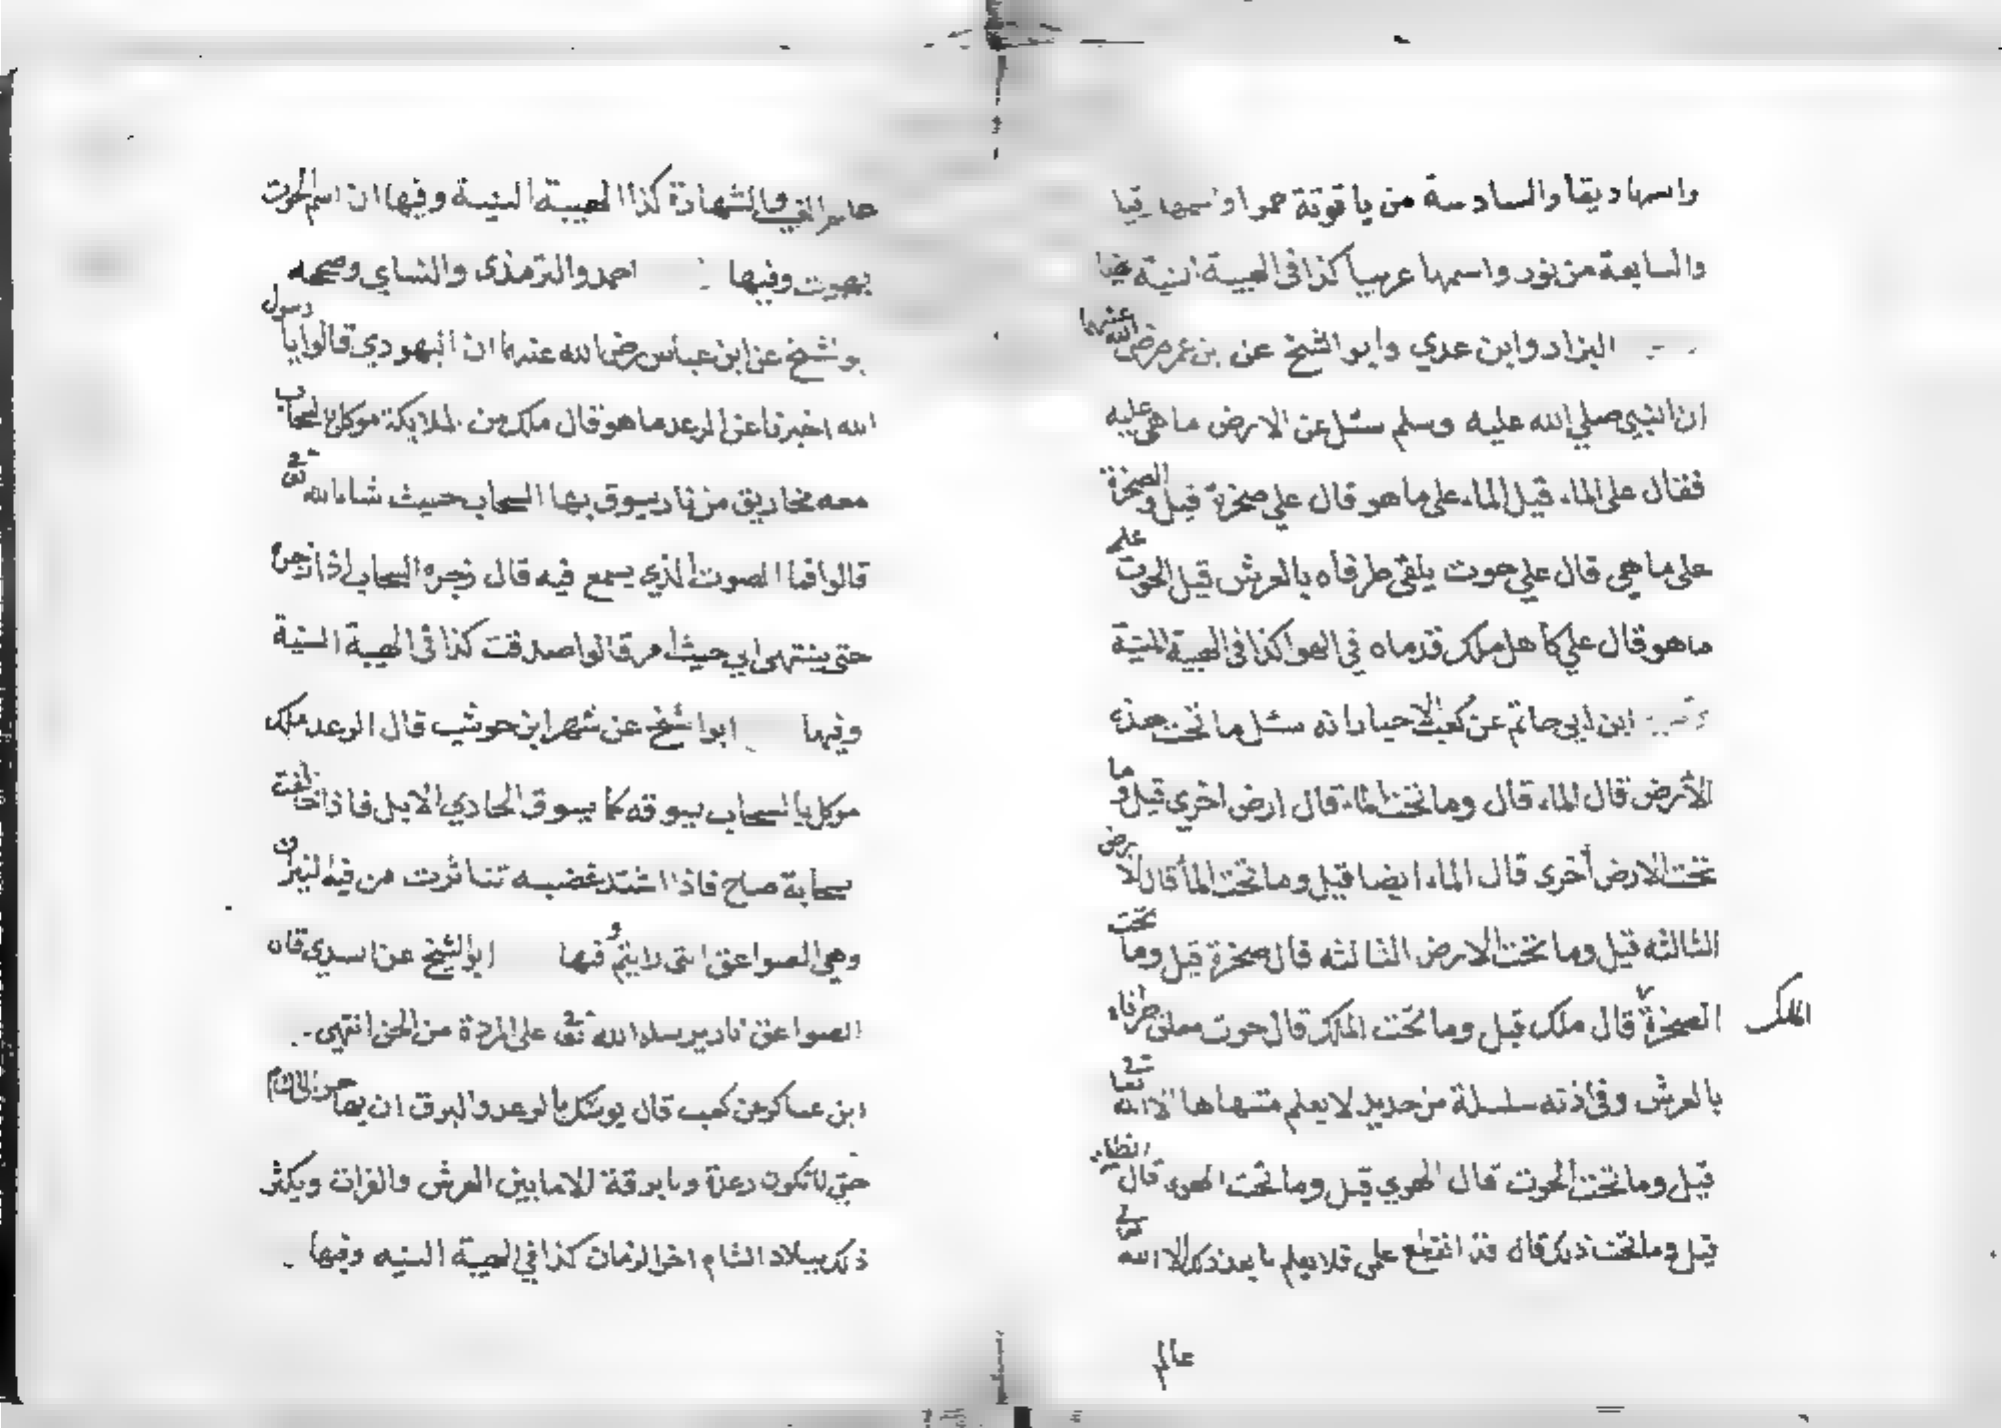 واسمها ديقا والسادسة من ياقوتة حمرا واسمها رقيا
والسابعة من نور واسمها عريبا كذا في الهيية السنية
البزار وابن عدي وابو الشيخ عن بن عمر رضي الله عنهما
ان النبي صلي الله عليه وسلم سئل عن الارض ما هي عليه
فقال على الماء قيل الماء على ما هو قال علي صخرة قيل والصخرة
على ما هي قال علي حوت يلتقي طرفاه بالعرش قيل الحوت على
ما هو قال علي كاهل ملك قدماه في الهوا كذا في الهيية السنية
ابن ابي حاتم عن كعب الاحبار انه سئل ما تحت هذه
الأرض قال الماء قال وما تحت الماء قال ارض اخري قيل وما
تحت الارض أخرى قال الماء ايضا قيل وما تحت الماء قال الارض
الثالثه قيل وما تحت الارض الثالثه قال صخرة قيل وما تحت
الصخرة قال ملك قيل وما تحت الملك قال حوت معلق طرفاه
الملك
بالعرش وفي اذنه سلسلة من حديد لا يعلم منتهاها الا الله تعا
قيل وما تحت الحوت قال الهوي قيل وما تحت الهوى قال الظلمة
قيل وما تحت ذلك قال قد انقطع علمي فلا يعلم ما بعد ذلك الا الله تعـ
عالم
عالم الغيب والشهادة كذا الهيية السنية وفيها ان اسم الحوت
بهموت وفيها احمد والترمذى والنساي وصححه
بو الشيخ عن ابن عباس رضي الله عنهما ان اليهودي قالوا يا رسول
الله اخبرنا عن الرعد ما هو قال ملك من الملايكة موكل بالسحاب
معه مخاريق من نار يسوق بها السحاب حيث شاء الله تعـ
قالوا فما الصوت الذي يسمع فيه قال زجره السحاب اذا زجره
حتى ينتهى الي حيث امر قالوا صدقت كذا في الهيية السنية
وفيها ابو الشيخ عن شهر ابن حوشب قال الرعد ملك
موكل بالسحاب يسوقه كما يسوق الحادي الابل فاذا خالفت
سحابة صاح فاذا اشتد غضبه تناثرت من فيه النيران
وهي الصواعق التى رايتم وفيها ابو الشيخ عن السدي قال
الصواعق نار يرسلها الله تعـ على المردة من الجن انتهى
ابن عساكر عن كعب قال يوشك بالرعد والبرق ان يهاجر الى الشام
حتى لا تكون رعدة ولا برقة الا ما بين العرش والفرات ويكثر
ذلك ببلاد الشام اخر الزمان كذا في الهيية السنيه وفيها